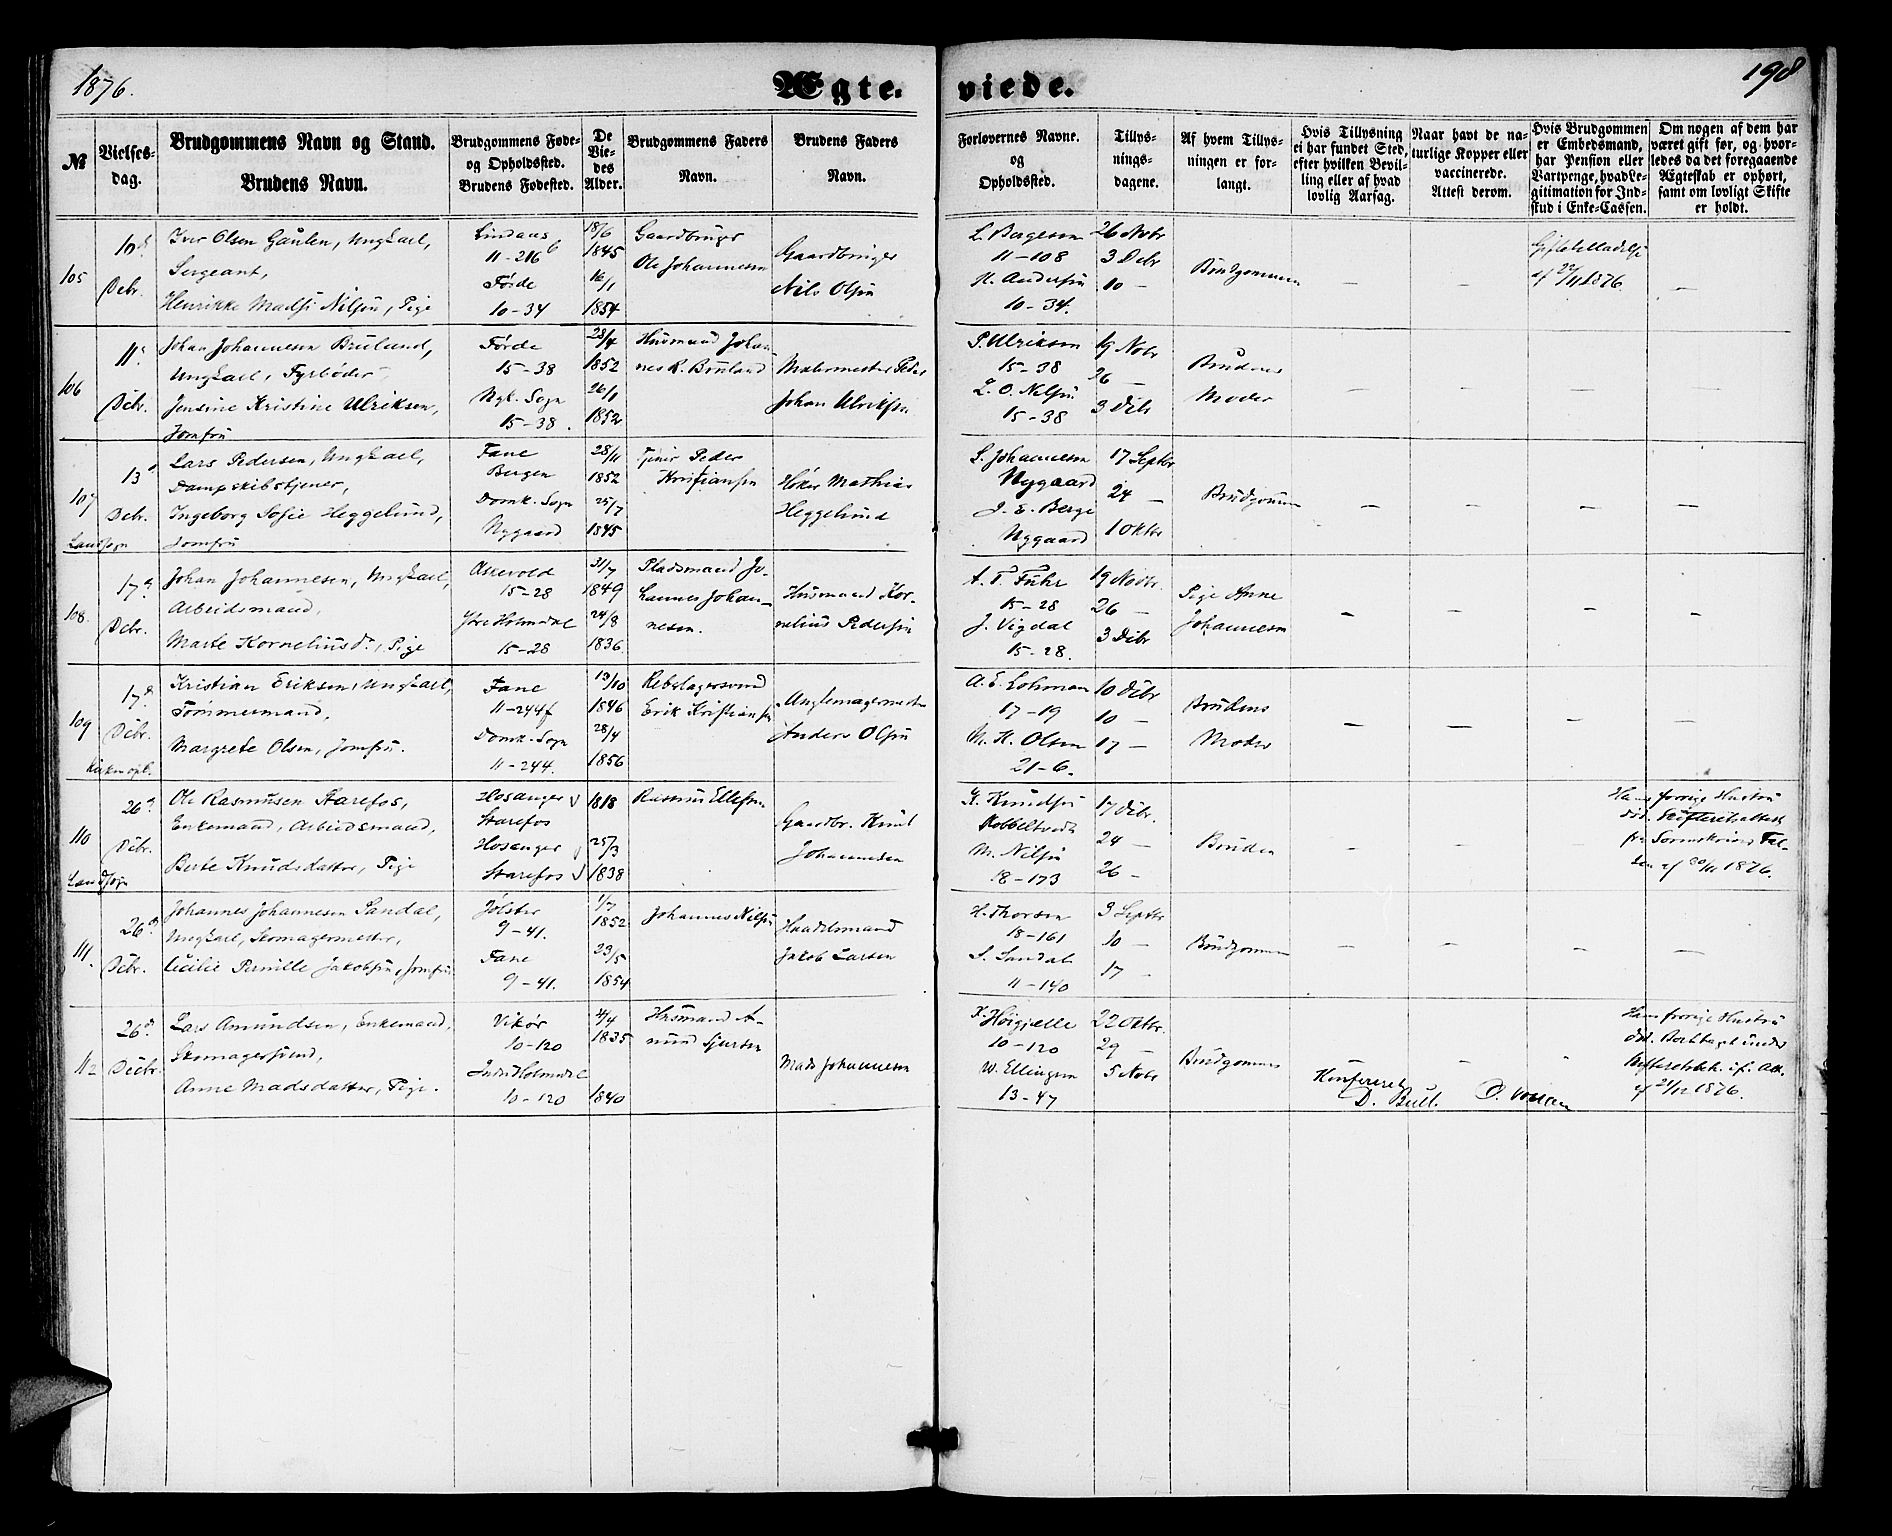 1876.
Ægte-
viede.
198
№
Vielses-
dag.
Brudgommens Navn og Stand.
Brudens Navn.
Brudgommens Føde-
og Opholdssted.
Brudens Fødested.
De
Vie-
des
Alder.
Brudgommens Faders
Navn.
Brudens Faders
Navn.
Forlovernes Navne.
og
Opholdssted.
Tillys-
nings-
dagene.
Af hvem Tillys-
ningen er for-
langt.
Hvis Tillysning
ei har fundet Sted,
efter hvilken Bevil-
ling eller af hvad
lovlig Aarsag.
Naar havt de na-
turlige Kopper eller
vaccinerede.
Attest derom.
Hvis Brudgommen
er Embedsmand,
har Pension eller
Vartpenge, hvad Le-
gitimation for Ind-
skud i Enke-Cassen.
Om nogen af dem har
været gift før, og hvor-
ledes da det foregaaende
Ægteskab er ophørt,
samt om lovligt Skifte
er holdt.
105
10d
Debr.
Iver Olsen Gaulen, Ungkarl,
Sergeant,
Henrikke Madsi Nilsen, Pige
Lindaas
11-216b
Førde
10-34
18/6
1845
16/1
1854
Gaardbruger
Ole Johannesen
Gaardbruger
Nils Olsen
L. Bergesen
11-108
H. Andersen
10-34.
26 Novbr
3 Debr
10 —
Brudgommen
—
—
af 27/11 1876.
—
106
11d
Debr.
Johan Johannesen Bruland,
Ungkarl, Fyrbøder,
Jensine Kristine Ulriksen,
Jomfru
Førde
15-38
Nyk. Sogn
15-38.
28/4
1852
26/1
1852
Husmand Johan-
nes R. Bruland
Malermester Peder
Johan Ulriksen
P. Ulriksen
15-38
L. O. Nilsen
15-38
19 Novbr
26 —
3 Debr
Brudens
Moder
—
—
—
—
107
13d
Debr.
Landsogn
Lars Pedersen, Ungkarl,
Dampskibstjener,
Ingeborg Sofie Heggelund,
Jomfru
Fane
Bergen
Domk. Sogn
Nygaard
28/11
1852
25/7
1845
Tjener Peder
Kristiansen
Høker Mathias
Heggelund
S. Johannesen
Nygaard
J. E. Berge
Nygaard
17 Septbr
24 —
1 Oktbr
Brudgommen
—
—
—
—
108.
17d
Debr.
Johan Johannesen, Ungkarl,
Arbeidsmand,
Marte Korneliusdr, Pige
Askevold
15-28
Ytre Holmedal
15-28
31/7
1849
24/8
1836
Pladsmand Jo-
hannes Johan-
nesen.
Husmand Kor-
nelius Pedersen
A. T. Fuhr
15-28
J. Vigdal
15-28.
19 Novbr.
26 —
3 Debr
Pige Anne
Johannesen
—
—
—
—
109
17d
Debr.
Kristian Eriksen, Ungkarl,
Tømmermand,
Margrete Olsen, Jomfru.
Fane
11-244f
Domk. Sogn
11-244.
19/10
1846
28/4
1856
Rebslagersvend
Erik Kristiansen
Anders Olsen
A. E. Lohman
17-19
M. H. Olsen
21-6.
10 Debr
10 —
17 —
Brudens
Moder
—
—
—
—
110
26d
Debr.
Landsogn
Ole Rasmusen Starefos,
Enkemand, Arbeidsmand,
Berte Knudsdatter, Pige
Hosanger
Starefos
Hosanger
Starefos
1818
25/3
1838
Rasmus Ellefsen
Gaardbr. Knut
Johannesen
K. Knudsen
M. Nilsen
18-173
17 Debr.
24 —
26 —
Bruden
—
—
—
Hans forrige Hustru
død. Skifteretsattest
fra Sorenskriver Fal-
sen af 20/12 1876.
111.
26d
Debr.
Johannes Johannesen Sandal,
Ungkarl, Skomagermester,
Cecilie Pernille Jakobsen, Jomfru
Jølster
9-41.
Fane
9-41.
1/7
1852
23/5
1854
Johannes Nilsen
Handelsmand
Jakob Larsen
H. Thorsen
18-161
S. Sandal
11-140
3 Septbr
10 —
17 —
Brudgommen
—
—
—
—
112
26d
Debr.
Lars Amundsen, Enkemand,
Skomagersvend,
Anne Madsdatter, Pige.
Vikør
10-120
Indre Holmedal
10-120
4/4
1835
1840
Husmand A-
mund Sjursen
Mads Johannesen
K. Høigjelle
10-120
W. Ellingsen
13-47
22 Oktbr.
29 —
5 Novbr
Brudgommen
Konfereret
D. Bull.
—
Hans forrige Hustru
død.
af 21/12 1876.